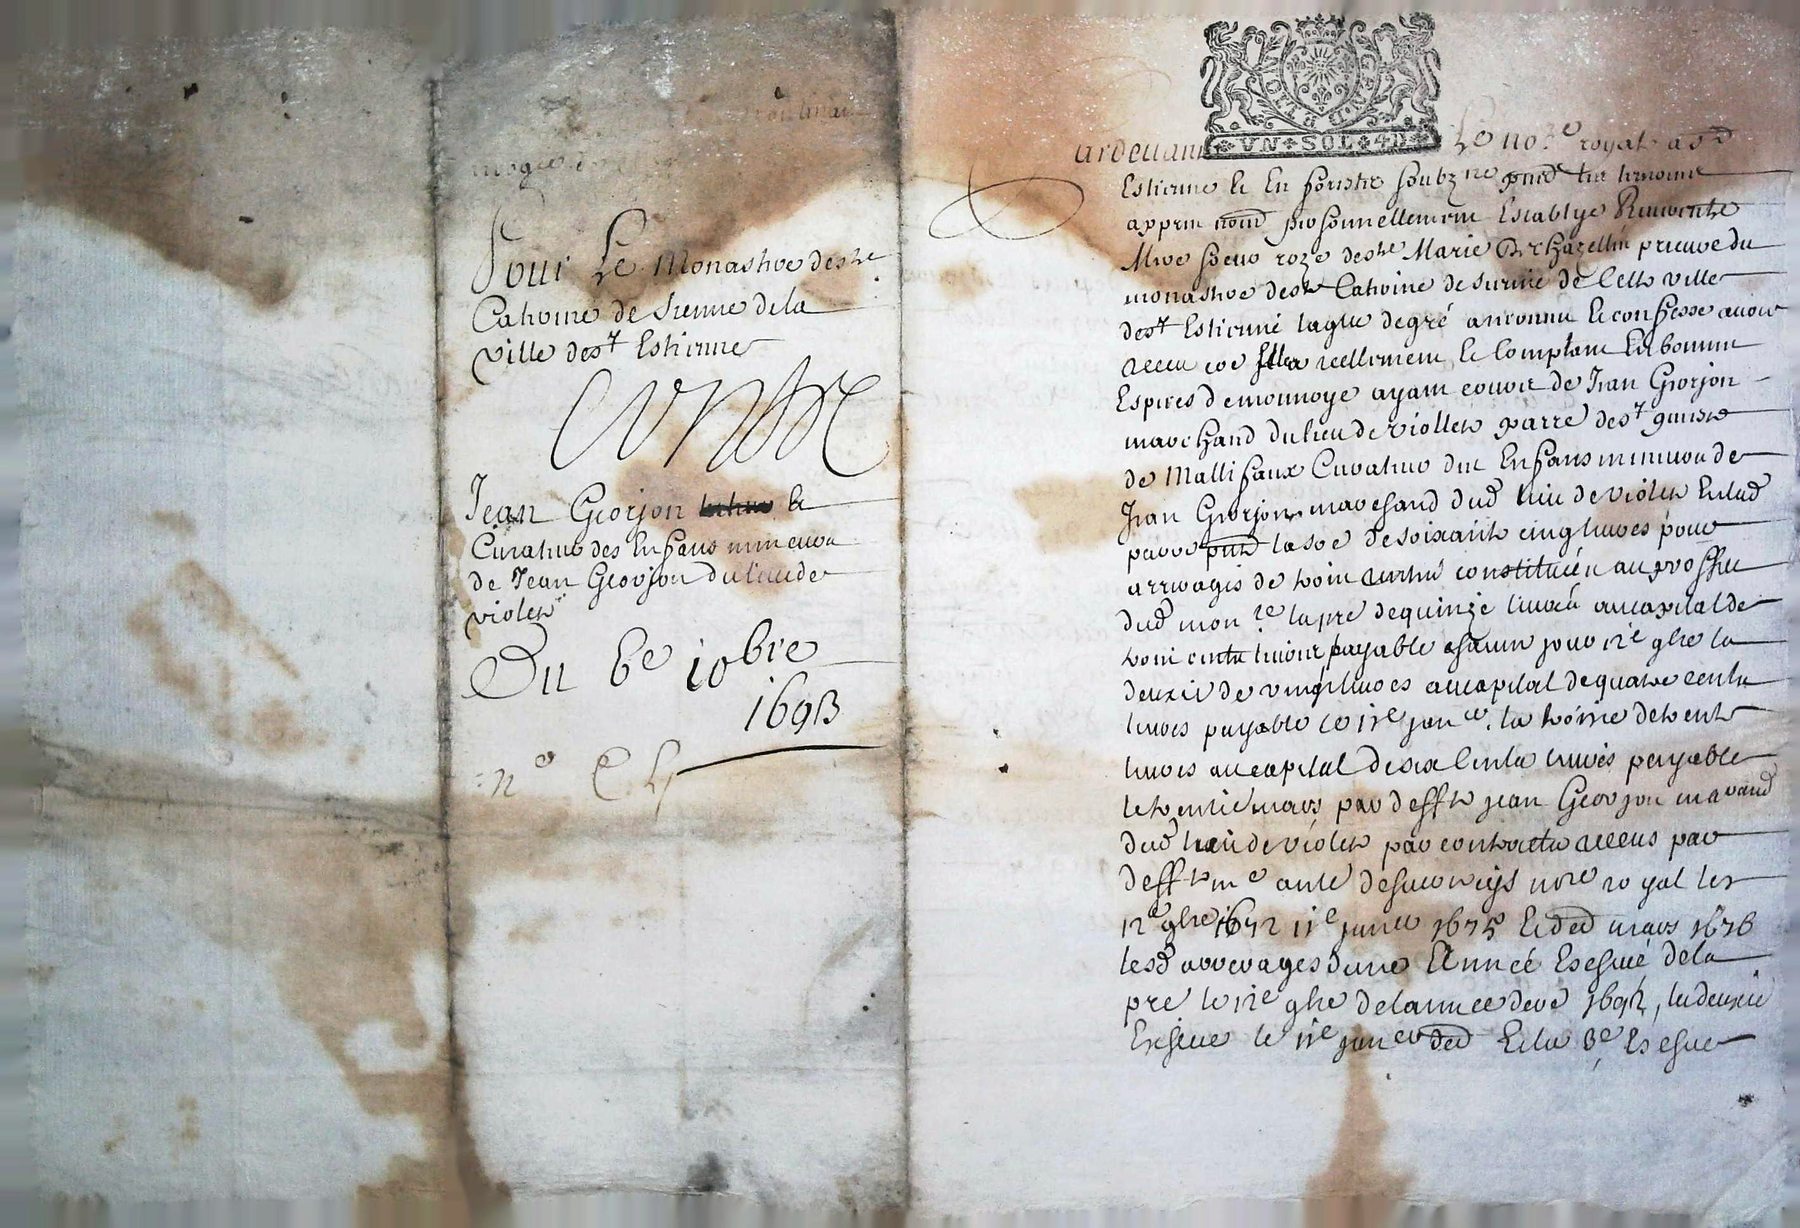 Pour Le Monastre de ste
Catrine de Sienne de la
ville de st Estienne
contre
Jean Georjon et
Curateur des Enfans mineurs
de Jean Georjon du lieu de
violett
Du 6e 10bre
1693
GENERAL
VN SOL 4D
ardevant Le nore royal a sd
Estienne et En soubzne tesmoins
apprès nomd personnellement Establye Reverende
Mere soeur roze de ste Marie prieure du
monastre de ste Catrine de sienne de Cette ville
de st Estienne laque de gré a reconnu et confesse avoir
receu reellement et Comptant En bonne
Espices de monnoye ayant cours de Jean Georjon
marchand du lieu de viollett parre de st genest
de Mallifaux Curateur des Enfans mineurs de
Jean Georjon marchand dud lieu de violett
la soe de soixante cinq livres pour
arrerages de constituéen au proffit
dud monre la pre de quinze livres au capital de
trois cents livres payable chacun jour 12e 9bre la
deuxie de vingt livres au capital de quatre cents
livres payable le 11e janer. la troisie de trente
livres au capital de six Cents livres payable
le trentie mars par defft jean Georjon marand
dud lieu de violett par contracts receus par
defft me nore royal les
12e 9bre 1672 11e janer 1675 et ded mars 1676
lesd arrerages d'une Année Escheue de la
pre le 12e 9bre de lannee dere 1692, la deuxie
Escheue le 11e janer ded Et la 3e Escheue